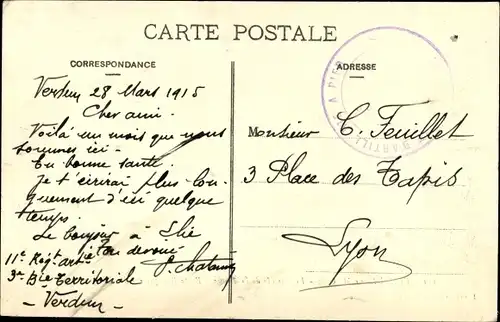 CARTE POSTALE
CORRESPONDANCE
Verdun 28 Mars 1915
Cher ami.
Voilà un mois que nous
sommes ici -
En bonne santé.
Je t'écrirai plus lon-
guement d'ici quelque
temps.
Le bonjour à
Ton dévoué
11e Régt artie
3e Bie Territoriale
- Verdun -
ADRESSE
A PIED
D'ARTILL
Monsieur C. Feuillet
3 Place des Tapis
Lyon